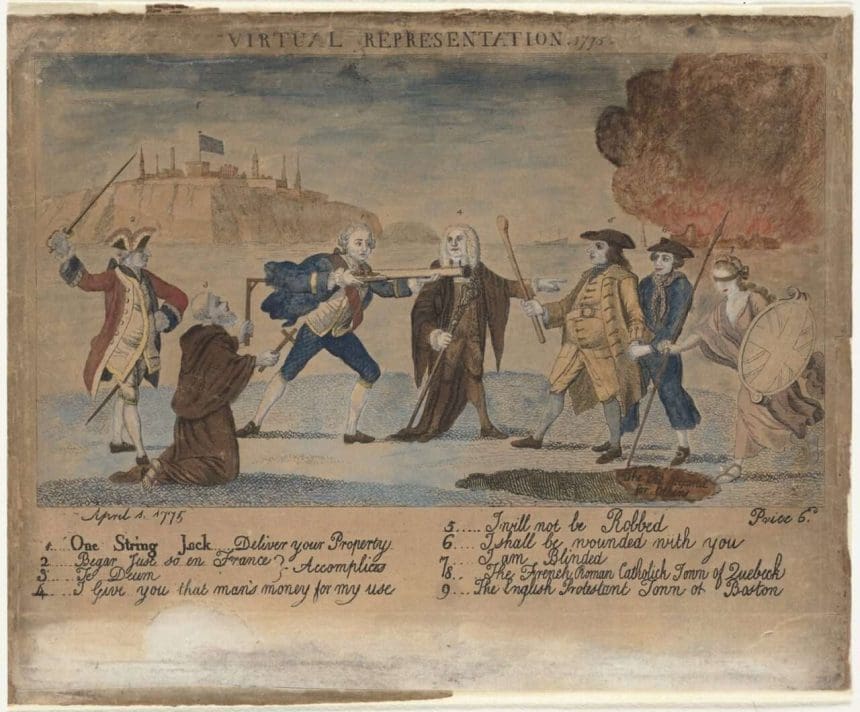 VIRTUAL REPRESENTATION. 1775.
2
3
4
April 1. 1775
Price 6.d
1....One String Jack....Deliver your Property
2....Begar Just so en France } Accomplices
3....Te Deum
4....I Give you that man's money for my use
5.....I will not be Robbed
6.....I shall be wounded with you
7....I am Blinded
8...The French Roman Catholick Town of Quebeck
9....The English Protestant Town of Boston